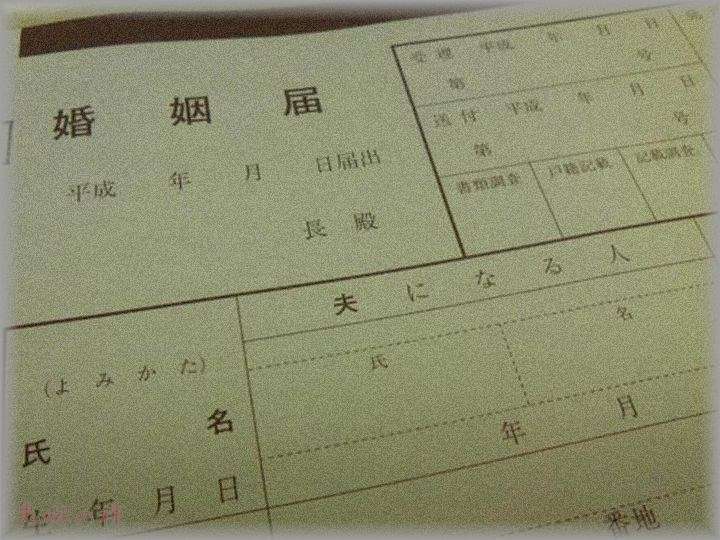 婚姻届
平成 年 月 日届出
長殿
受理 平成 年 月 日
第 号
送付 平成 年 月 日
第 号
書類調査 戸籍記載 記載調査
夫になる人
(よみかた)
氏 名
氏 名
年 月 日
年 月
番地